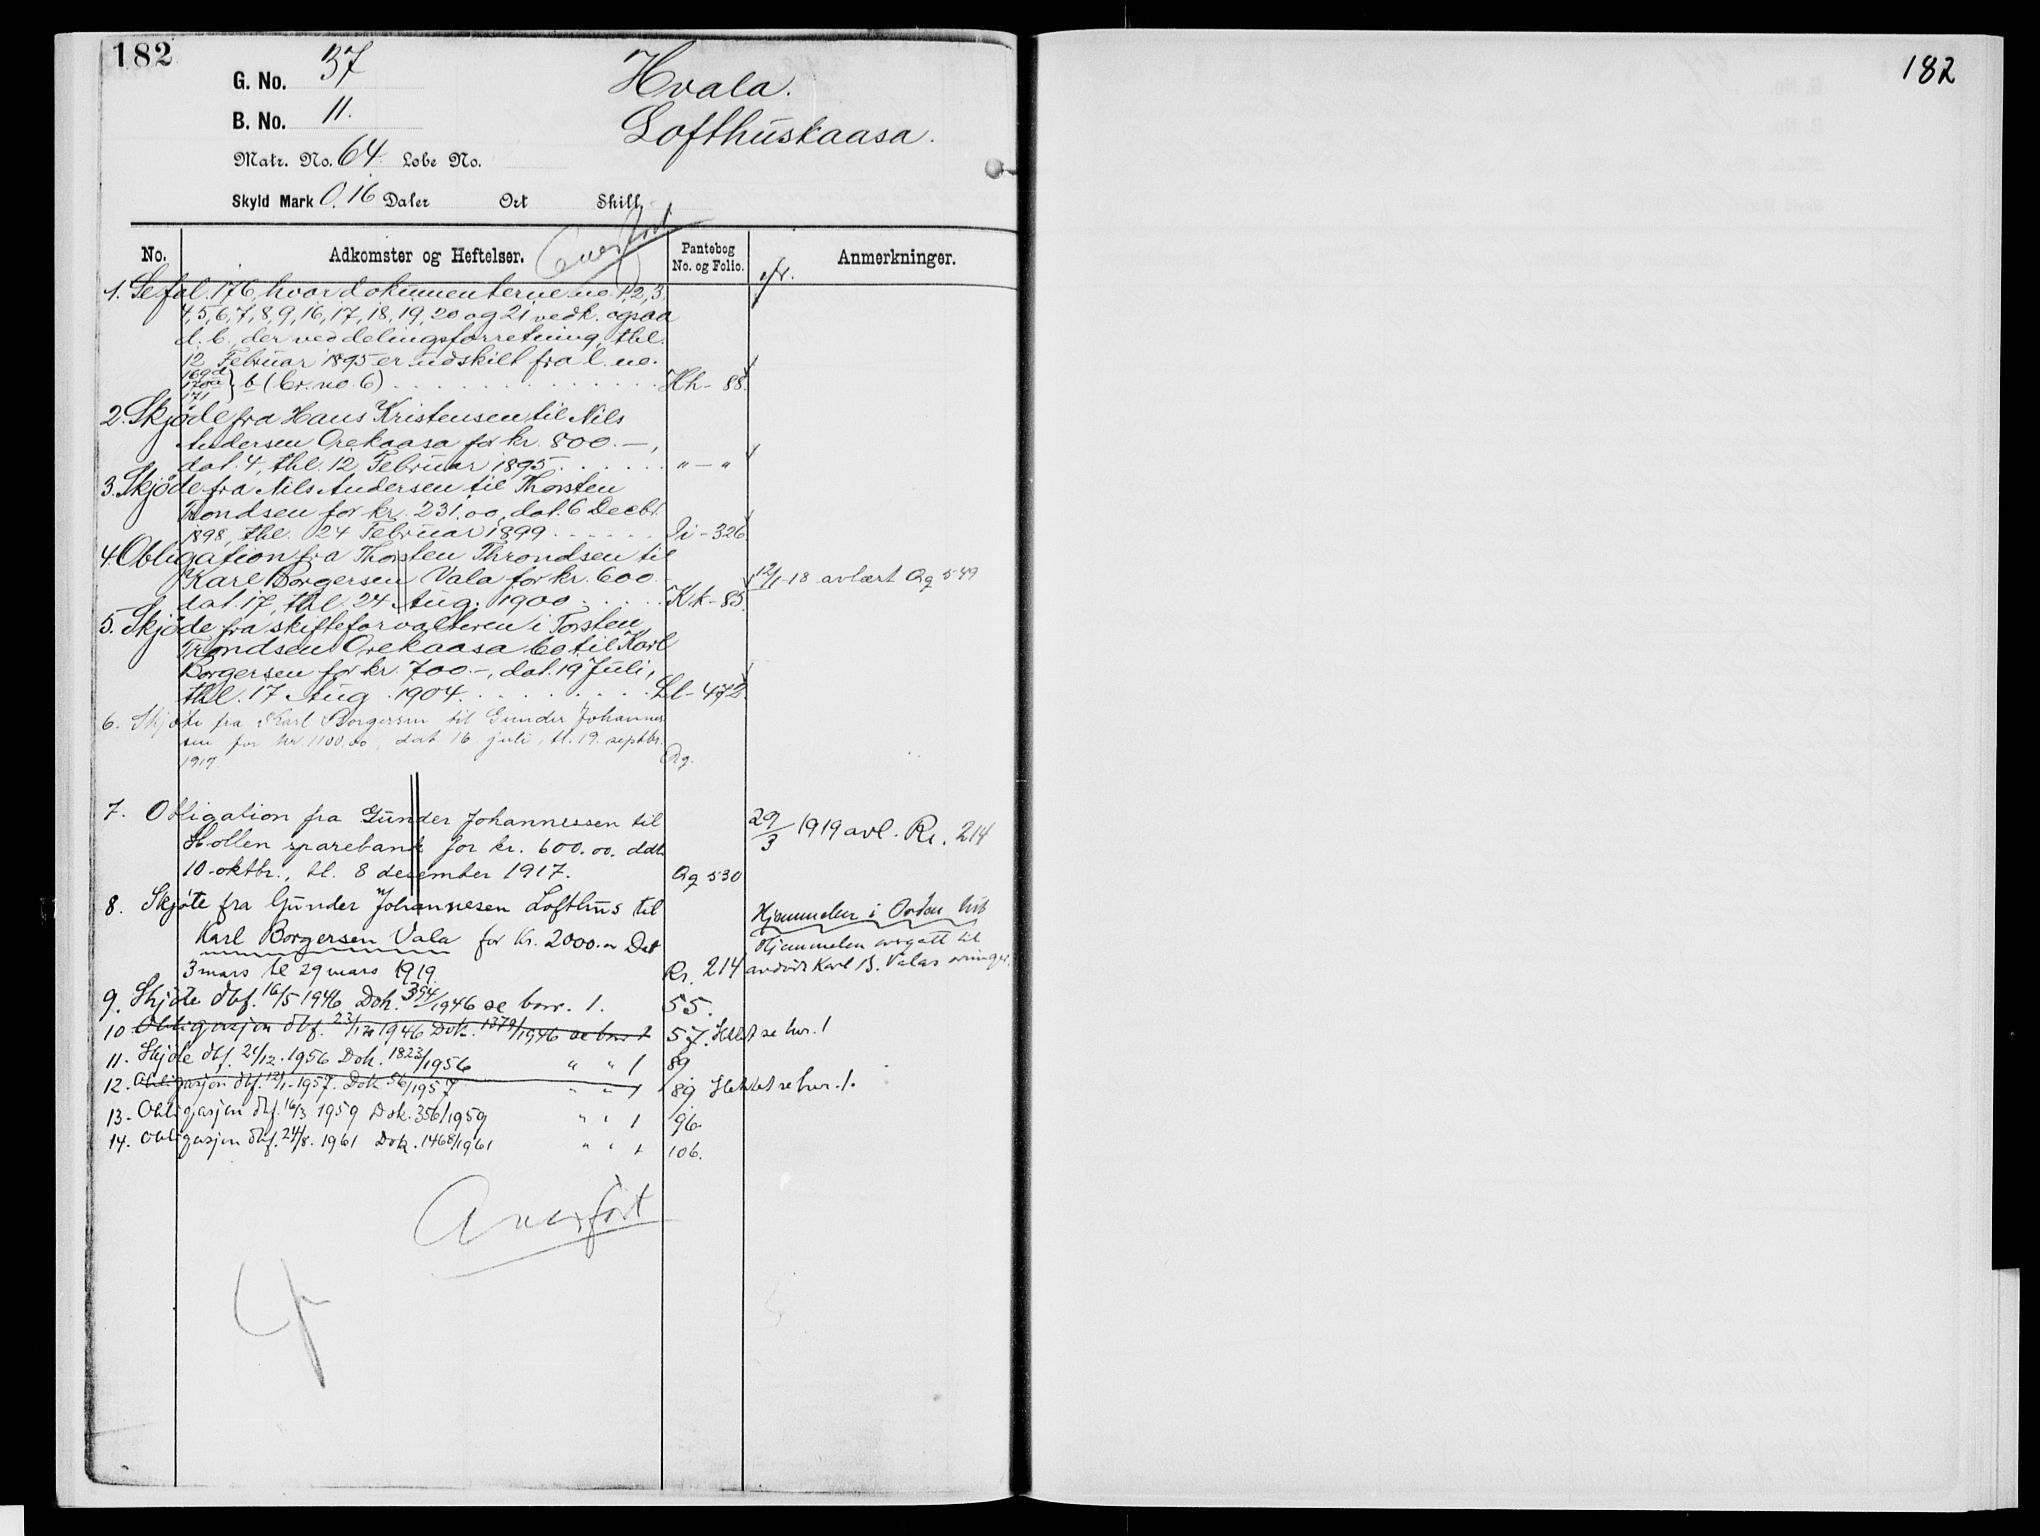 182
G. No. 37
B. No. 11.
Matr. No. 64. Løbe No.
Skyld Mark 0,16 Daler Ort Skill.
Hvala.
Lofthuskaasa.
Overført
No. Adkomster og Heftelser. Pantebog No. og Folio. Anmerkninger.
1. Se fol. 176, hvor dokumenterne no. 1, 2, 3,
4, 5, 6, 7, 8, 9, 16, 17, 18, 19, 20 og 21 vedk. ogsaa
d. b., der ved delingsforretning, thl.
12 Februar 1895 er udskilt fra l. no.
169d 170a 171 } b (br. no. 6) Hh - 88.
2. Skjøde fra Hans Kristensen til Nils
Andersen Orekaasa for kr. 800.—,
dat. 4, thl. 12 Februar 1895 " — "
3. Skjøde fra Nils Andersen til Thorsten
Trondsen for kr. 231.00, dat. 6 Decbr.
1898, thl. 24 Februar 1899 Ii - 326
4. Obligation fra Thorsten Throndsen til
Karl Borgersen Vala for kr. 600.-
dat. 17, thl. 24 Aug. 1900 Kk - 85.
12/1-18 avlæst Qq 549
5. Skjøde fra skifteforvalteren i Torsten
Trondsen Orekaasa bo til Karl
Borgersen for kr. 700.—, dat. 19 Juli,
thl. 17 Aug. 1904. Ll - 472.
6. Skjøte fra Karl Borgersen til Gunder Johannes
sen for kr. 1100.00, dat 16 juli, tl. 19. septbr.
1917. Qq.
7. Obligation fra Gunder Johannessen til
Hollen sparebank for kr. 600.00. dat.
10 oktbr., tl. 8 desember 1917. Qq 530
29/3 1919 avl. Rr. 214
8. Skjøte fra Gunder Johannesen Lofthus til
Karl Borgersen Vala for kr. 2000.- Dat
3 mars tl 29 mars 1919. Rr. 214
Hjemmelen i Orden hit
Hjemmelen overgått til
avdøde Karl B. Valas arvinger.
9. Skjøte dbf. 16/5 1946 Dok. 394/1946 se bow. 1. 55.
10 Obligasjon dbf. 23/12 1946 Dok. 1379/1946 se bow 1 57. Slettet se bow. 1
11. Skjøte dbf. 24/12. 1956 Dok. 1823/1956 " " 1 89
12. Obligasjon dbf. 12/1. 1957. Dok 56/1957 " " 1 89 Slettet se bow. 1.
13. Obligasjon dbf. 16/3 1959 Dok. 356/1959 " " 1 96
14. Obligasjon dbf. 24/8. 1961 Dok. 1468/1961 " " 1 106.
Overført
182